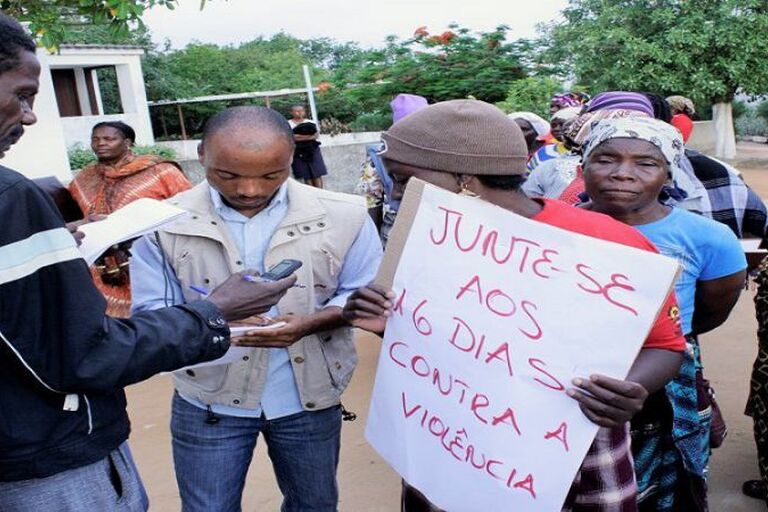 JUNTE-SE
AOS
16 DIAS
CONTRA A
VIOLÊNCIA